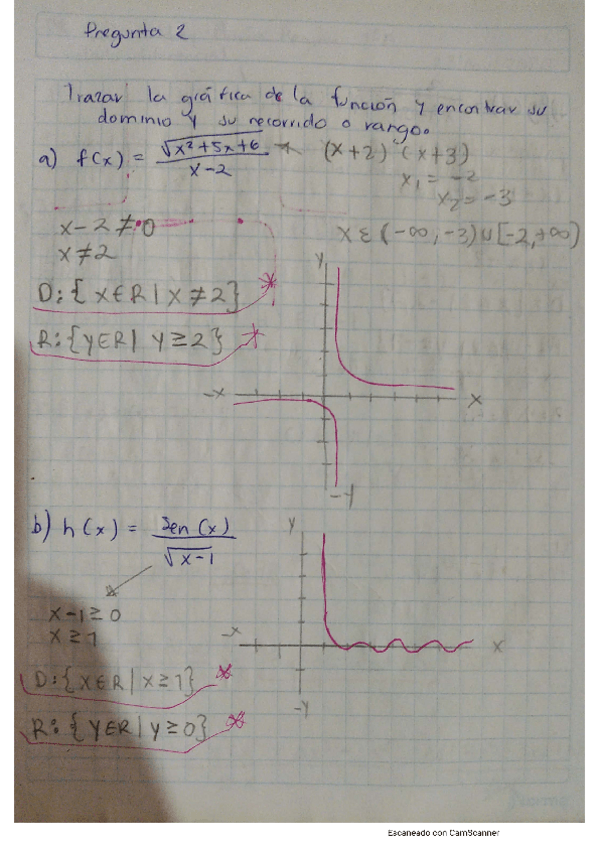 Pregunta 2
Trazar la gráfica de la función y encontrar su
dominio y su recorrido o rango.
a) f(x) = √x²+5x+6 / x-2
(x+2) (x+3)
x₁ = -2
x₂ = -3
x-2 ≠ 0
x ≠ 2
x ε (-∞, -3) ∪ [-2, +∞)
D: { x ∈ R | x ≠ 2}
R: {y ∈ R | y ≥ 2}
y
-x
x
-y
b) h(x) = Sen (x) / √x-1
x-1 ≥ 0
x ≥ 1
D: {x ∈ R | x ≥ 1}
R: { y ∈ R | y ≥ 0}
y
-x
x
-y
Escaneado con CamScanner